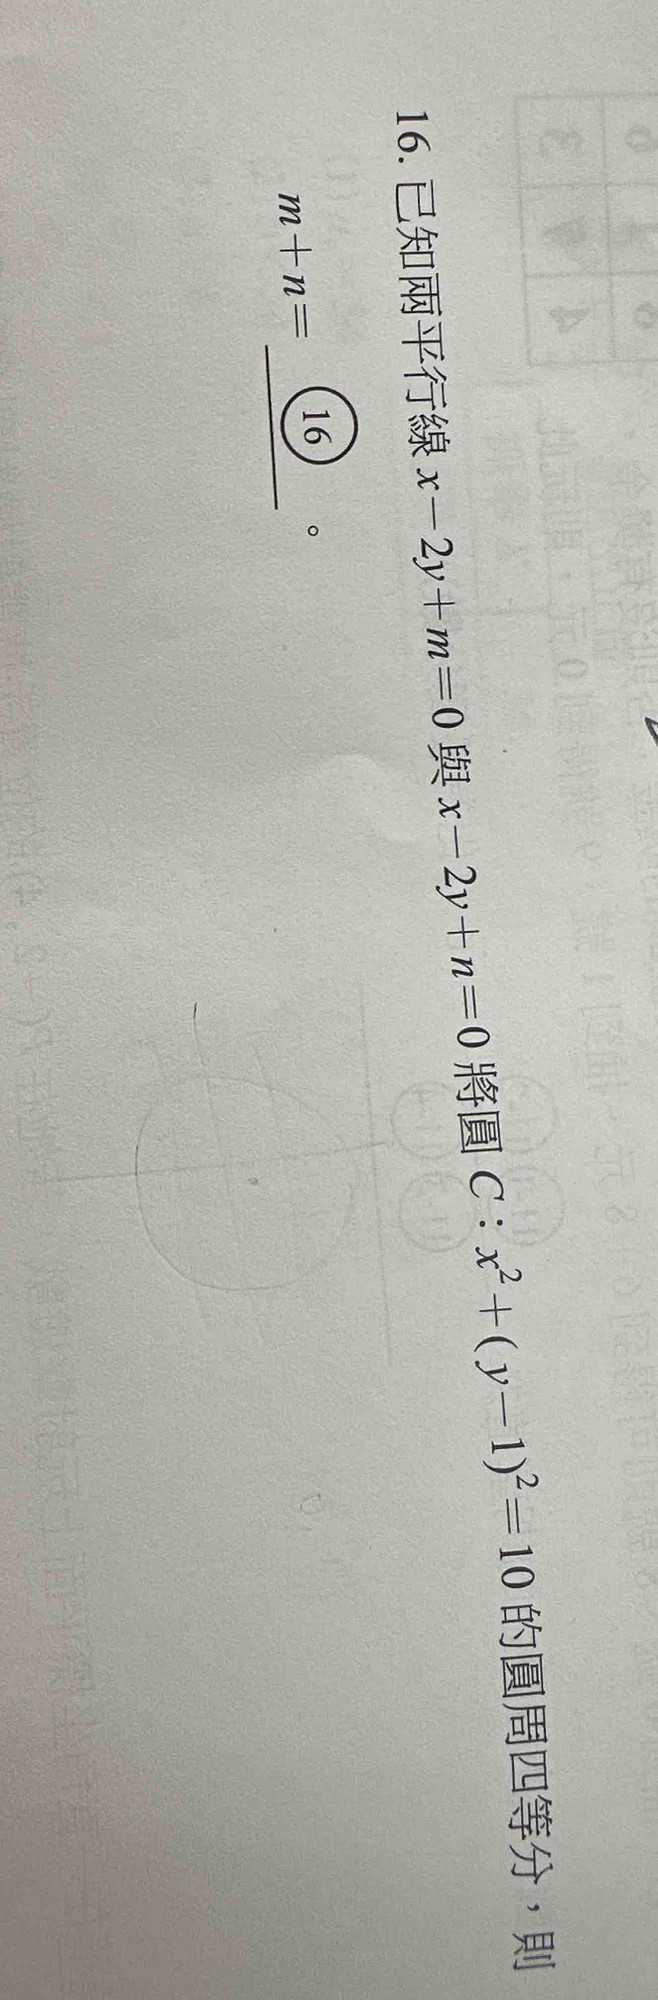 16. 已知兩平行線 x－2y＋m＝0 與 x－2y＋n＝0 將圓 C：x²＋(y－1)²＝10 的圓周四等分，則
m＋n＝ ⑯ 。